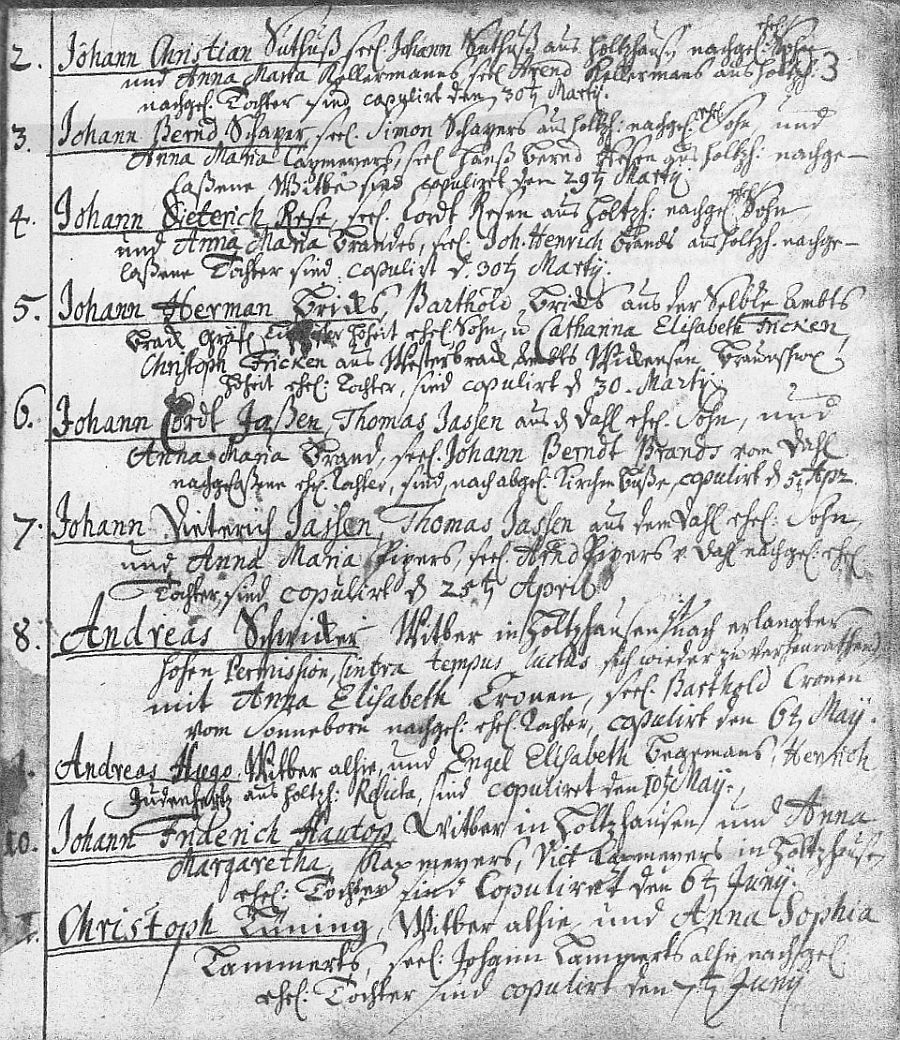 2. Johann Christian Suthuß seel. Johann Suthuß aus Holtzhausen nachgel. ehel. Sohn
und Anna Maria Kellermanns, seel. Arend Kellermans aus Holtzh. 3
nachgel. Tochter sind copulirt den 30t Martij.
3. Johann Bernd Schaper, seel. Simon Schapers aus Holtzh: nachgel. ehel. Sohn und
Anna Maria Tapmeyers, seel. Hanß Bernd Resen aus Holtzh: nachge-
laßene Witbe sind copuliret den 29t Martij
4. Johann Dieterich Rese, seel. Cordt Resen aus Holtzh: nachgel. ehel. Sohn
und Anna Maria Brandes, seel. Joh. Henrich Brands aus Holtzh. nachge-
laßene Tochter sind copulirt d. 30t Martij.
5. Johann Herman Bricks, Barthold Bricks aus der Selbde Ambts
Hoheit ehel. Sohn, u Catharina Elisabeth Fricken
Christoph Fricken aus Westerbrack Ambts Wickensen Braunschw.
Hoheit ehel: Tochter, sind copulirt d 30. Martij.
6. Johann Cordt Jaßen, Thomas Jassen aus d Dahl ehel. Sohn, und
Anna Maria Brand, seel. Johann Berndt Brands vom Dahl
nachgelaßene ehel. Tochter, sind, nach abgel. Kirchen Buße, copulirt d 5t Apr.
7. Johann Dieterich Jassen, Thomas Jassen aus dem Dahl ehel: Sohn,
und Anna Maria Pipers, seel. Arnd Pipers v. Dahl nachgel: ehel
Tochter, sind copulirt d 25t April
8. Andreas Schricker Witber in Holtzhausen nach erlangter
hohen Permission, (intra tempus luctus sich wieder zu verheurathen)
mit Anna Elisabeth Cronen, seel. Barthold Cronen
vom Sonneborn nachgel: ehel. Tochter, copulirt den 6t Maij.
Andreas Hugo Witber alhie, und Engel Elisabeth Begemans, Henrich
aus Holtzh: Relicta, sind copuliret den 10t Maij.
10. Johann Friderich Hauton Witber in Holtzhausen und Anna
Margaretha Tapmeyers, Tapmeyers in Holtzhausen
ehel: Tochter sind Copuliret den 6t Junij.
Christoph Tüning, Witber alhie und Anna Sophia
Lammerts, seel: Johann Lammerts alhie nachgel.
ehel: Tochter sind copulirt den 7t Junij